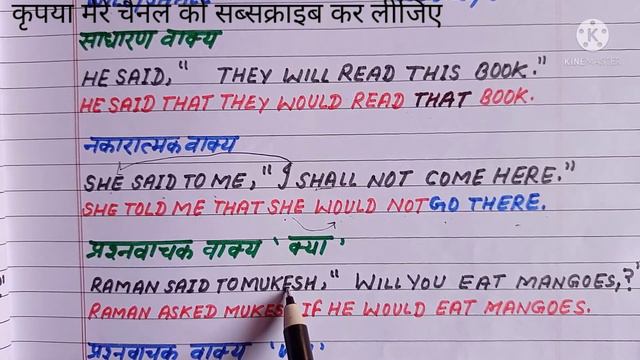 कृपया मेरे चैनल को सब्सक्राइब कर लीजिए
KINEMASTER
साधारण वाक्य
HE SAID, " THEY WILL READ THIS BOOK."
HE SAID THAT THEY WOULD READ THAT BOOK.
नकारात्मक वाक्य
SHE SAID TO ME, "I SHALL NOT COME HERE."
SHE TOLD ME THAT SHE WOULD NOT GO THERE.
प्रश्नवाचक वाक्य 'क्या'
RAMAN SAID TO MUKESH, " WILL YOU EAT MANGOES,?
RAMAN ASKED MUKESH IF HE WOULD EAT MANGOES.
प्रश्नवाचक वाक्य